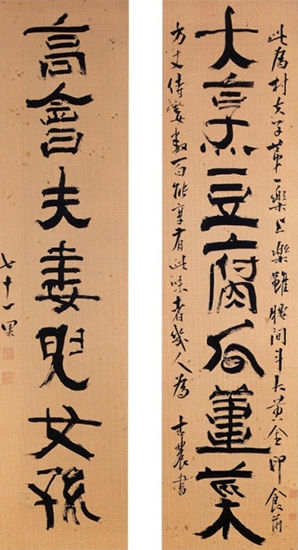 大烹豆腐瓜薑菜
高會夫妻兒女孫
此為村夫子第一樂上樂雖腰間斗大黃金印食前
方丈侍妾數百能享有此味者幾人為 古農書
七十一果